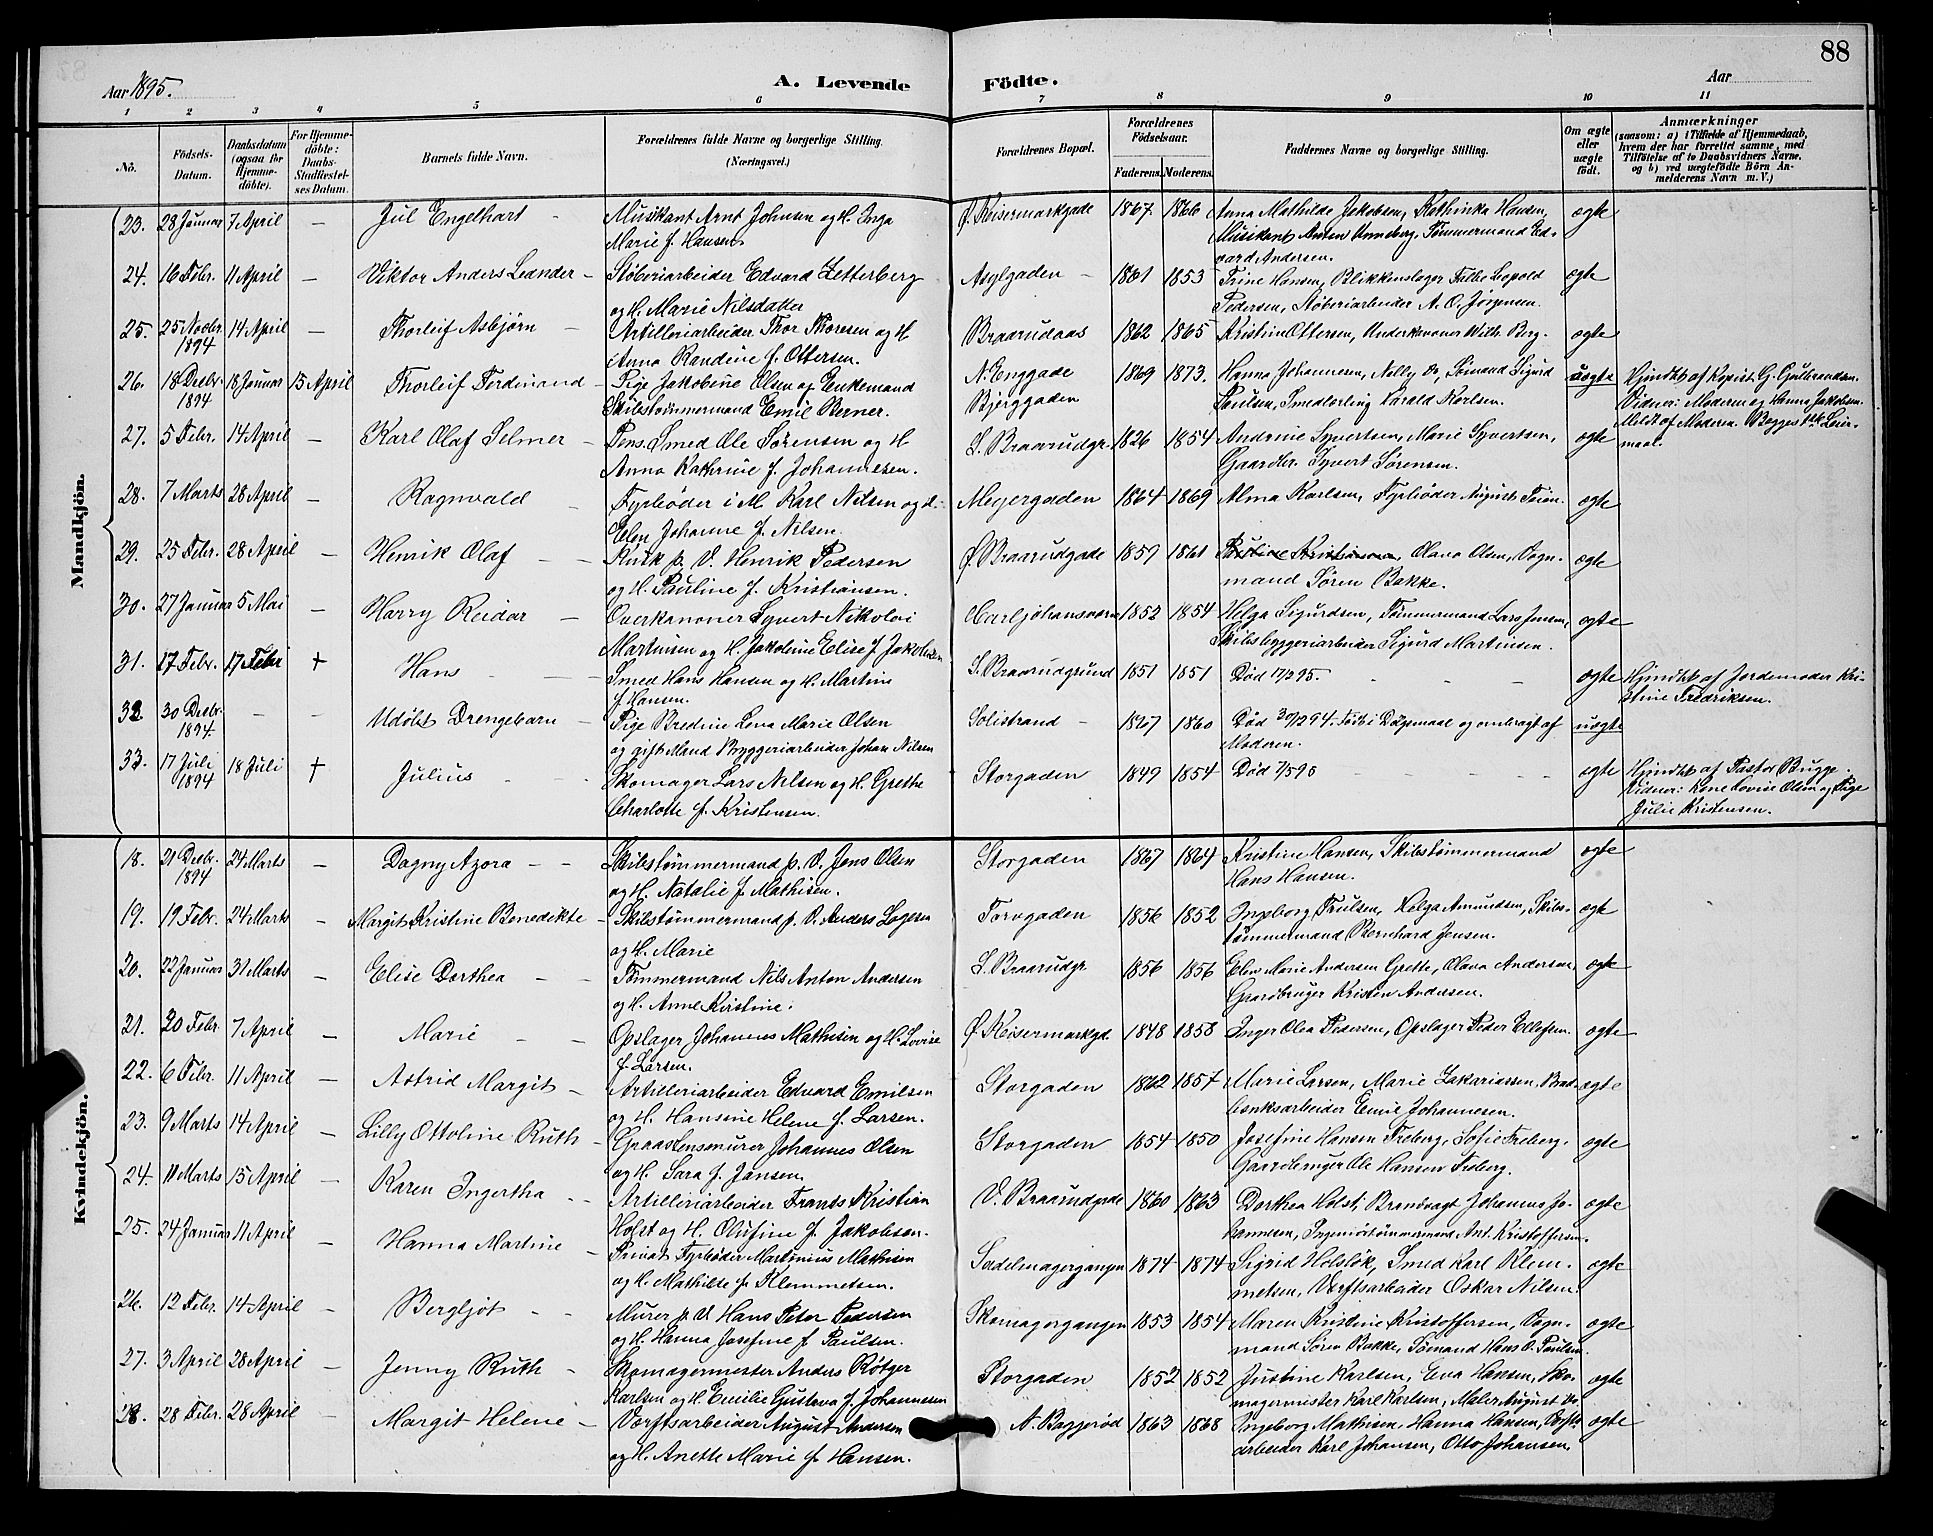 88
Aar 1895.
A. Levende Födte.
Aar
1 2 3 4 5 6 7 8 9 10 11
No.
Födsels-Datum.
Daabsdatum (ogsaa for Hjemme-döbte).
For Hjemme-döbte: Daabs-Stadfæstel-ses Datum.
Barnets fulde Navn.
Forældrenes fulde Navne og borgerlige Stilling. (Næringsvei.)
Forældrenes Bopæl.
Forældrenes Födselsaar.
Faderens. Moderens.
Faddernes Navne og borgerlige Stilling.
Om ægte eller uægte födt.
Anmærkninger
(saasom: a) i Tilfælde af Hjemmedaab, hvem der har forrettet samme, med Tilföielse af to Daabsvidners Navne, og b) ved uægtefödte Börn An-melderens Navn m. V.)
Mandkjön.
23. 28 Januar 7 April — Jul Engelhart – Musikant Arnt Johnsen og H. Inga Ø. Keisermarkgade 1867 1866 Anna Mathilde Jakobsen, Kathinka Hansen, ægte
Marie f. Hansen Musikant Anton Unneberg, Tømmermand Ed-
vard Andersen.
24. 16 Febr. 11 April — Viktor Anders Leander – Støberiarbeider Edvard Zetterberg Asylgaden – 1861 1853 Trine Hansen, Blikkenslager Leopold ægte
og H. Marie Nilsdatter Pedersen, Støberiarbeider A. O. Jørgensen.
25. 25 Novbr. 1894 14 April — Thorleif Asbjørn – Artilleriarbeider Thor Thoresen og H. Braarudaas 1862 1865 Kristine Ottersen, Underkanoner With. Berg. ægte
Anna Randine f. Ottersen.
26. 18 Decbr. 1894 18 Januar 15 April Thorleif Ferdinand – Pige Jakobine Olsen og Enkemand N. Enggade 1869 1873. Hanna Johannesen, Nelly do, Sømand Sigurd uægte Hjmdbt af Kapist. G. Gulbrandsen.
Skibstømmermand Emil Berner. Bjerggaden Paulsen, Smedlærling Harald Karlsen. Vidner: Moderen og Hanna Jakobsen.
27. 5 Febr. 14 April — Karl Olaf Selmer – Pens. Smed Ole Sørensen og H. S. Braarudgr. 1826 1854 Andrine Syvertsen, Marie Syvertsen, ægte Meldt af Moderen. Begges 1ste Leier-
Anna Kathrine f. Johannesen. Gaardbr. Syvert Sørensen. maal.
28. 7 Marts 28 April — Ragnvald – Fyrbøder i M. Karl Nilsen og H. Meyergaden 1864 1869 Alma Karlsen, Fyrbøder August ægte
Elen Johanne f. Nilsen.
29. 25 Febr. 28 April — Henrik Olaf – – Kusk p. V. Henrik Pedersen Ø. Braarudgade 1859 1861 Kristiansen, Olava Olsen, Vogn- ægte
og H. Pauline f. Kristiansen. mand Søren Bakke.
30. 27 Januar 5 Mai — Harry Reidar – Overkanoner Syvert Nikolai Carljohansværn 1852 1854 Helga Sigurdsen, Tømmermand Lars Jensen, ægte
Martinsen og H. Jakobine Elise f. Jakobsen Skibsbyggeriarbeider Sigurd Martinsen.
31. 17 Febr. 17 Febr + Hans – – Smed Hans Hansen og H. Martine S. Braarudgrund 1851 1851 Død 17/2 95. – – – ægte Hjmdbt af Jordemoder Kri-
f. Hansen. stine Fredriksen.
32. 30 Decbr. 1894 – – Udøbt Drengebarn – Pige Bredine Lena Marie Olsen Solistrand – 1867 1860 Død 30/12 94. Født i Dølgsmaal og ombragt af uægte
og gift Mand Bryggeriarbeider Johan Nilsen Moderen.
33. 17 Juli 1894 18 Juli + Julius – – Skomager Lars Nilsen og H. Grethe Storgaden 1849 1854 Død 7/5 95 – – – – ægte Hjmdbt af Pastor Bugge.
Charlotte f. Kristensen. Vidner: Kone Lovise Olsen og Pige
Julie Kristensen.
Kvindekjön.
18. 21 Decbr. 1894 24 Marts — Dagny Azora – – Skibstømmermand p. V. Jens Olsen Storgaden 1867 1864 Kristine Hansen, Skibstømmermand ægte
og H. Natalie f. Mathisen. Hans Hansen.
19. 19 Febr. 24 Marts — Margit Kristine Benedikte – Skibstømmermand p. V. Anders Lagesen Torvgaden 1856 1852 Ingeborg Trulsen, Helga Amundsen, Skibs- ægte
og H. Marie tømmermand Bernhard Jensen.
20. 22 Januar 31 Marts — Elise Dorthea – – Tømmermand Nils Anton Andersen S. Braarudgr. 1856 1856 Elen Marie Andersen Grette, Olava Andersen, ægte
og H. Anne Kristine. Gaardbruger Kristen Andersen.
21. 20 Febr. 7 April — Marie – – Opslager Johannes Mathisen og H. Lovise Ø. Keisermarkgd. 1848 1858 Inger Olea Pedersen, Opslager Peder Ellefsen. ægte
f. Larsen.
22. 6 Febr. 11 April — Astrid Margit – Artilleriarbeider Edvard Emilsen Storgaden 1862 1857 Marie Larsen, Marie Zakariassen, Brad- ægte
og H. Hansine Helene f. Larsen. bænksarbeider Emil Johannesen.
23. 9 Marts 14 April — Lilly Ottoline Ruth – Graastensmurer Johannes Olsen Storgaden 1854 1850 Josefine Hansen Freberg, Sofie Freberg, ægte
og H. Sara f. Jansen. Gaardbruger Ole Hansen Freberg.
24. 11 Marts 15 April — Karen Ingertha – – Artilleriarbeider Frants Kristian V. Braarudgade 1860 1863 Dorthea Holst, Brandvagt Johannes Jo- ægte
Holst og H. Olufine f. Jakobsen. hannesen, Ingeniørtømmermand Ant. Kristoffersen.
25. 24 Januar 11 April — Hanna Martine – Privat Fyrbøder Martinius Mathisen Sadelmagergangen 1874 1874 Sigrid Holsløk, Smed Karl Klem- ægte
og H. Mathilde f. Klemmetsen. metsen, Værftsarbeider Oskar Nilsen.
26. 12 Febr. 14 April — Bergljot – – Murer p. V. Hans Peter Pedersen Skomagergangen 1853 1854 Maren Kristine Kristoffersen, Vogn- ægte
og H. Hanna Josefine f. Paulsen. mand Søren Bakke, Sømand Hans P. Paulsen.
27. 3 April 28 April — Jenny Ruth – Skomagermester Anders Røtger Storgaden 1852 1852 Justine Karlsen, Eva Hansen, Sko- ægte
Karlsen og H. Emilie Gustava f. Johannessen magermester Karl Karlsen, Maler August do.
28. 28 Febr. 28 April — Margit Helene – Værftsarbeider August Andersen N. Baggerød 1863 1868 Ingeborg Mathisen, Hanna Hansen, Værfts- ægte
og H. Anette Marie f. Hansen. arbeider Karl Johansen, Otto Johansen.